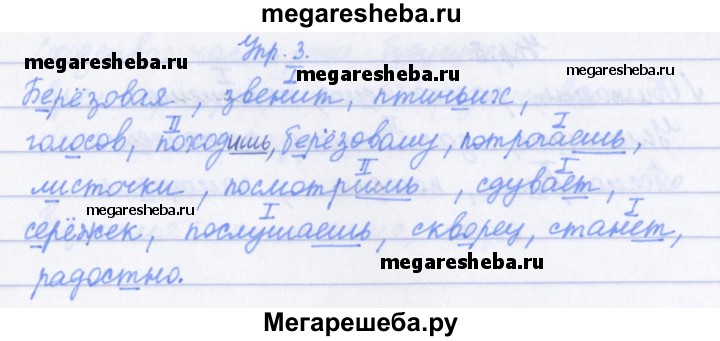 megaresheba.ru
Упр. 3.
megaresheba.ru
I
megaresheba.ru
Берёзовая, звенит, птичьих,
II I
голосов, походишь, берёзовому, потрогаешь,
II I
листочки, посмотришь, сдувает,
megaresheba.ru
I I
серёжек, послушаешь, скворец, станет,
megaresheba.ru
радостно.
Мегарешеба.ру